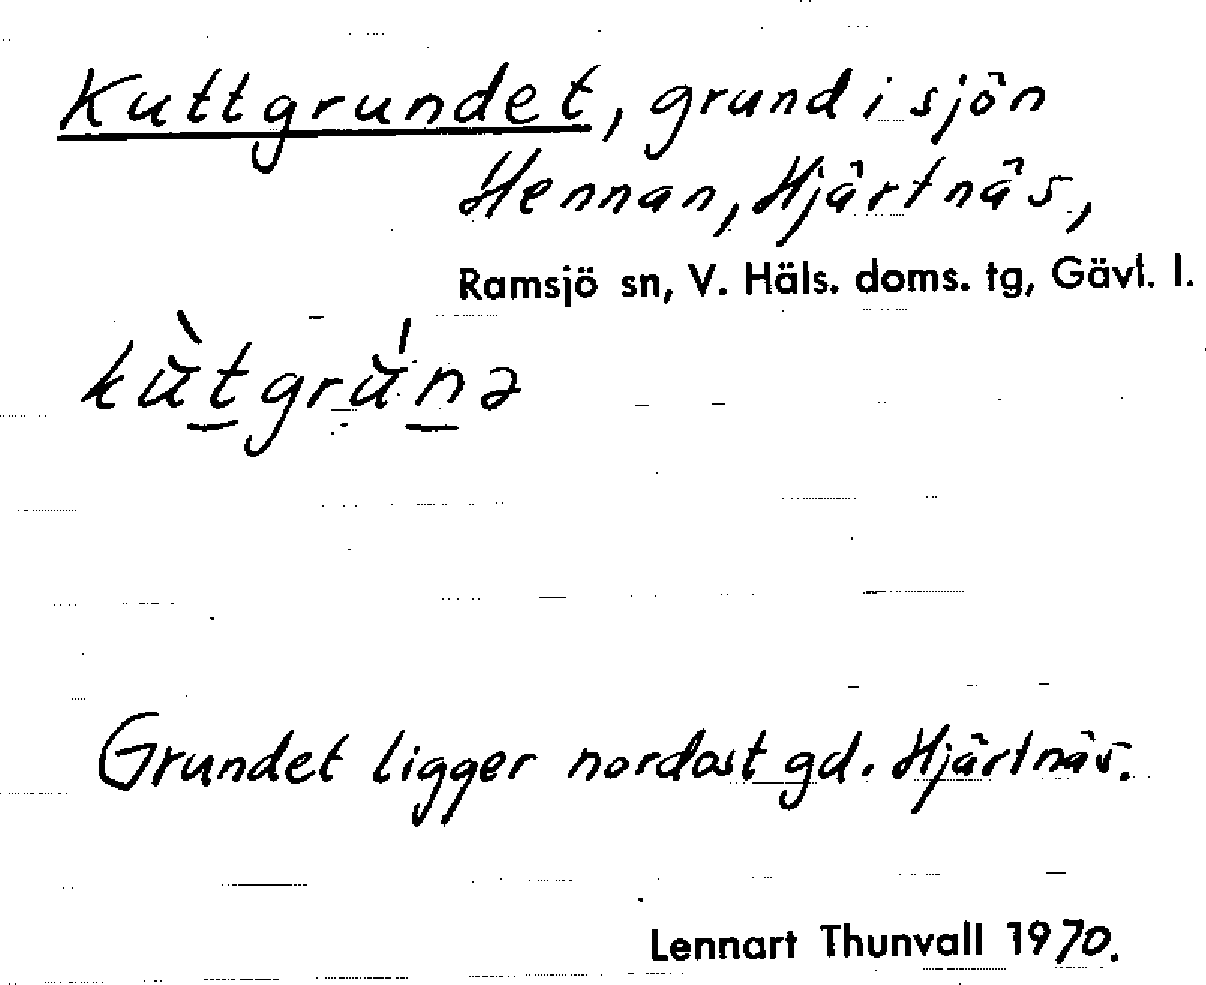 Kuttgrundet, grund i sjön
Hennan, Hjärtnäs,
Ramsjö sn, V. Häls. doms. tg, Gävl. l.
kùtgrúnə
Grundet ligger nordost gd. Hjärtnäs.
Lennart Thunvall 1970.